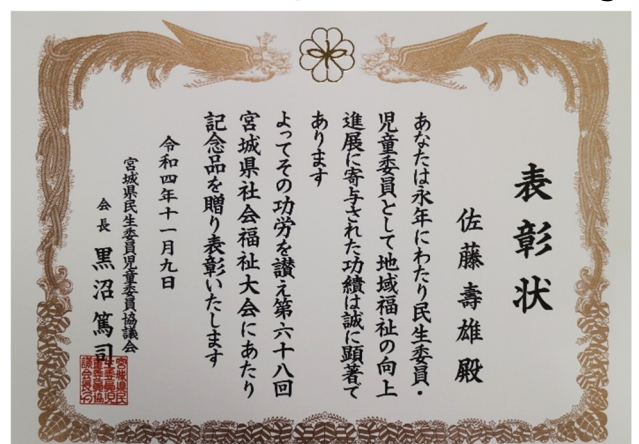 表彰状
佐藤壽雄殿
あなたは永年にわたり民生委員・
児童委員として地域福祉の向上
進展に寄与された功績は誠に顕著で
あります
よってその功労を讃え第六十八回
宮城県社会福祉大会にあたり
記念品を贈り表彰いたします
令和四年十一月九日
宮城県民生委員児童委員協議会
会長 黒沼篤司